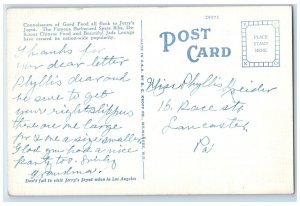 Connoisseurs of Good Food all flock to Jerry's
Joynt. The Famous Barbecued Spare Ribs, De-
licious Chinese Food and Beautiful Jade Lounge
have created us nation-wide popularity.
2N971
POST
CARD
PLACE
STAMP
HERE
Thanks for
our dear letter
Phyllis dear and
be sure to get
your right slippers
there are large
for me a size smaller
Glad you had a nice
party too. Lovingly
Grandma.
Don't fail to visit Jerry's Joynt when in Los Angeles
Miss Phyllis Kreider
15 Race Ave
Lancaster
Pa